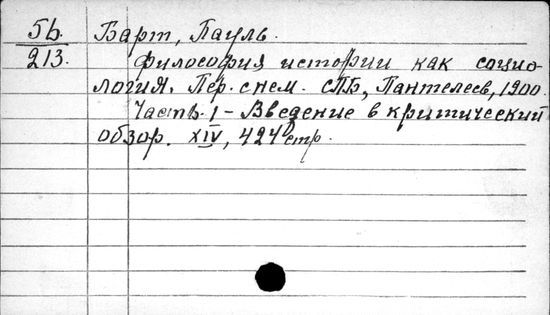 56.
213.
Барт, Пауль.
Философия истории как социо-
логия. Пер. с нем. СПБ, Пантелеев, 1900.
Часть I - Введение в критический
обзор. XIV, 424 стр.